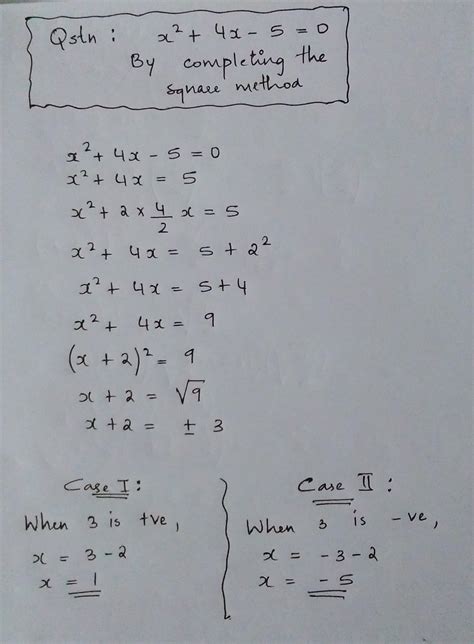 Qstn : x² + 4x - 5 = 0
By completing the
square method
x² + 4x - 5 = 0
x² + 4x = 5
x² + 2 × 4/2 x = 5
x² + 4x = 5 + 2²
x² + 4x = 5 + 4
x² + 4x = 9
(x + 2)² = 9
x + 2 = √9
x + 2 = ± 3
Case I :
When 3 is +ve,
x = 3 - 2
x = 1
Case II :
When 3 is -ve,
x = - 3 - 2
x = - 5